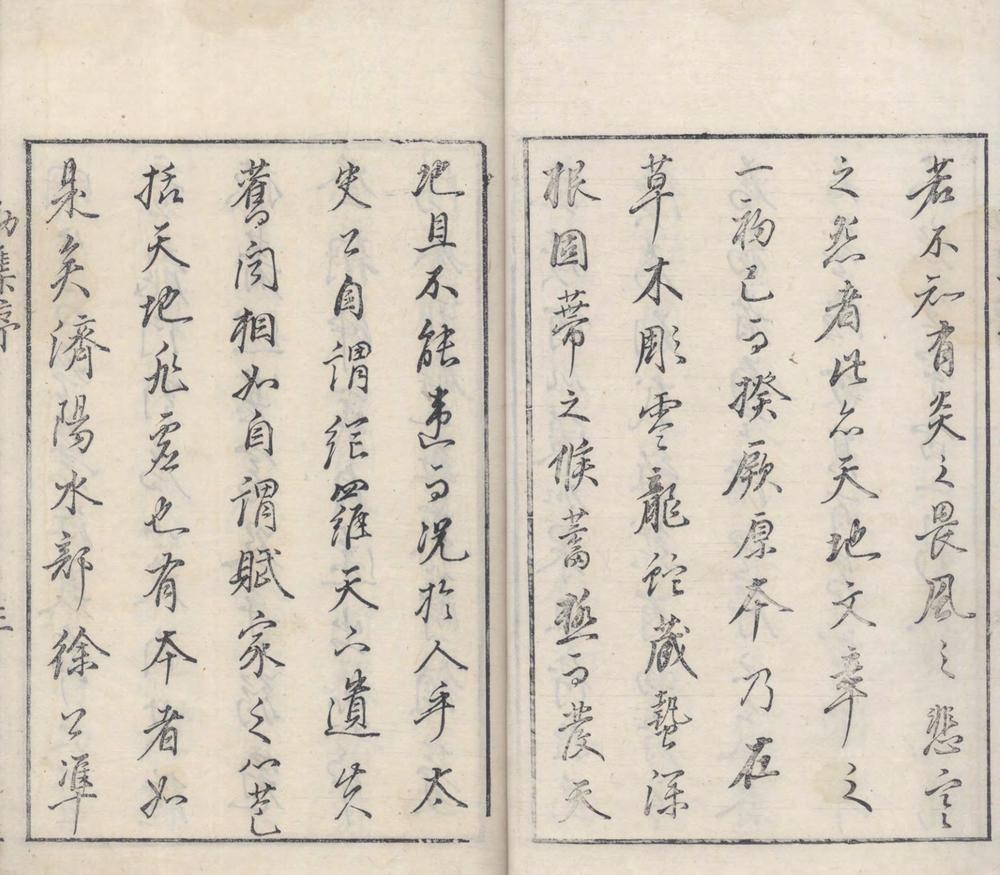 若不知有炎之畏風之悲寔
之然者此亦天地文章之
一物已而揆厥原本乃在
草木彫零龍蛇藏蟄深
根固蔕之候蓄極而發天
地且不能違而況於人乎太
史公自謂網羅天下遺失
舊聞相如自謂賦家之心苞
括天地非虛也有本者如
是矣濟陽水部徐公準
集序